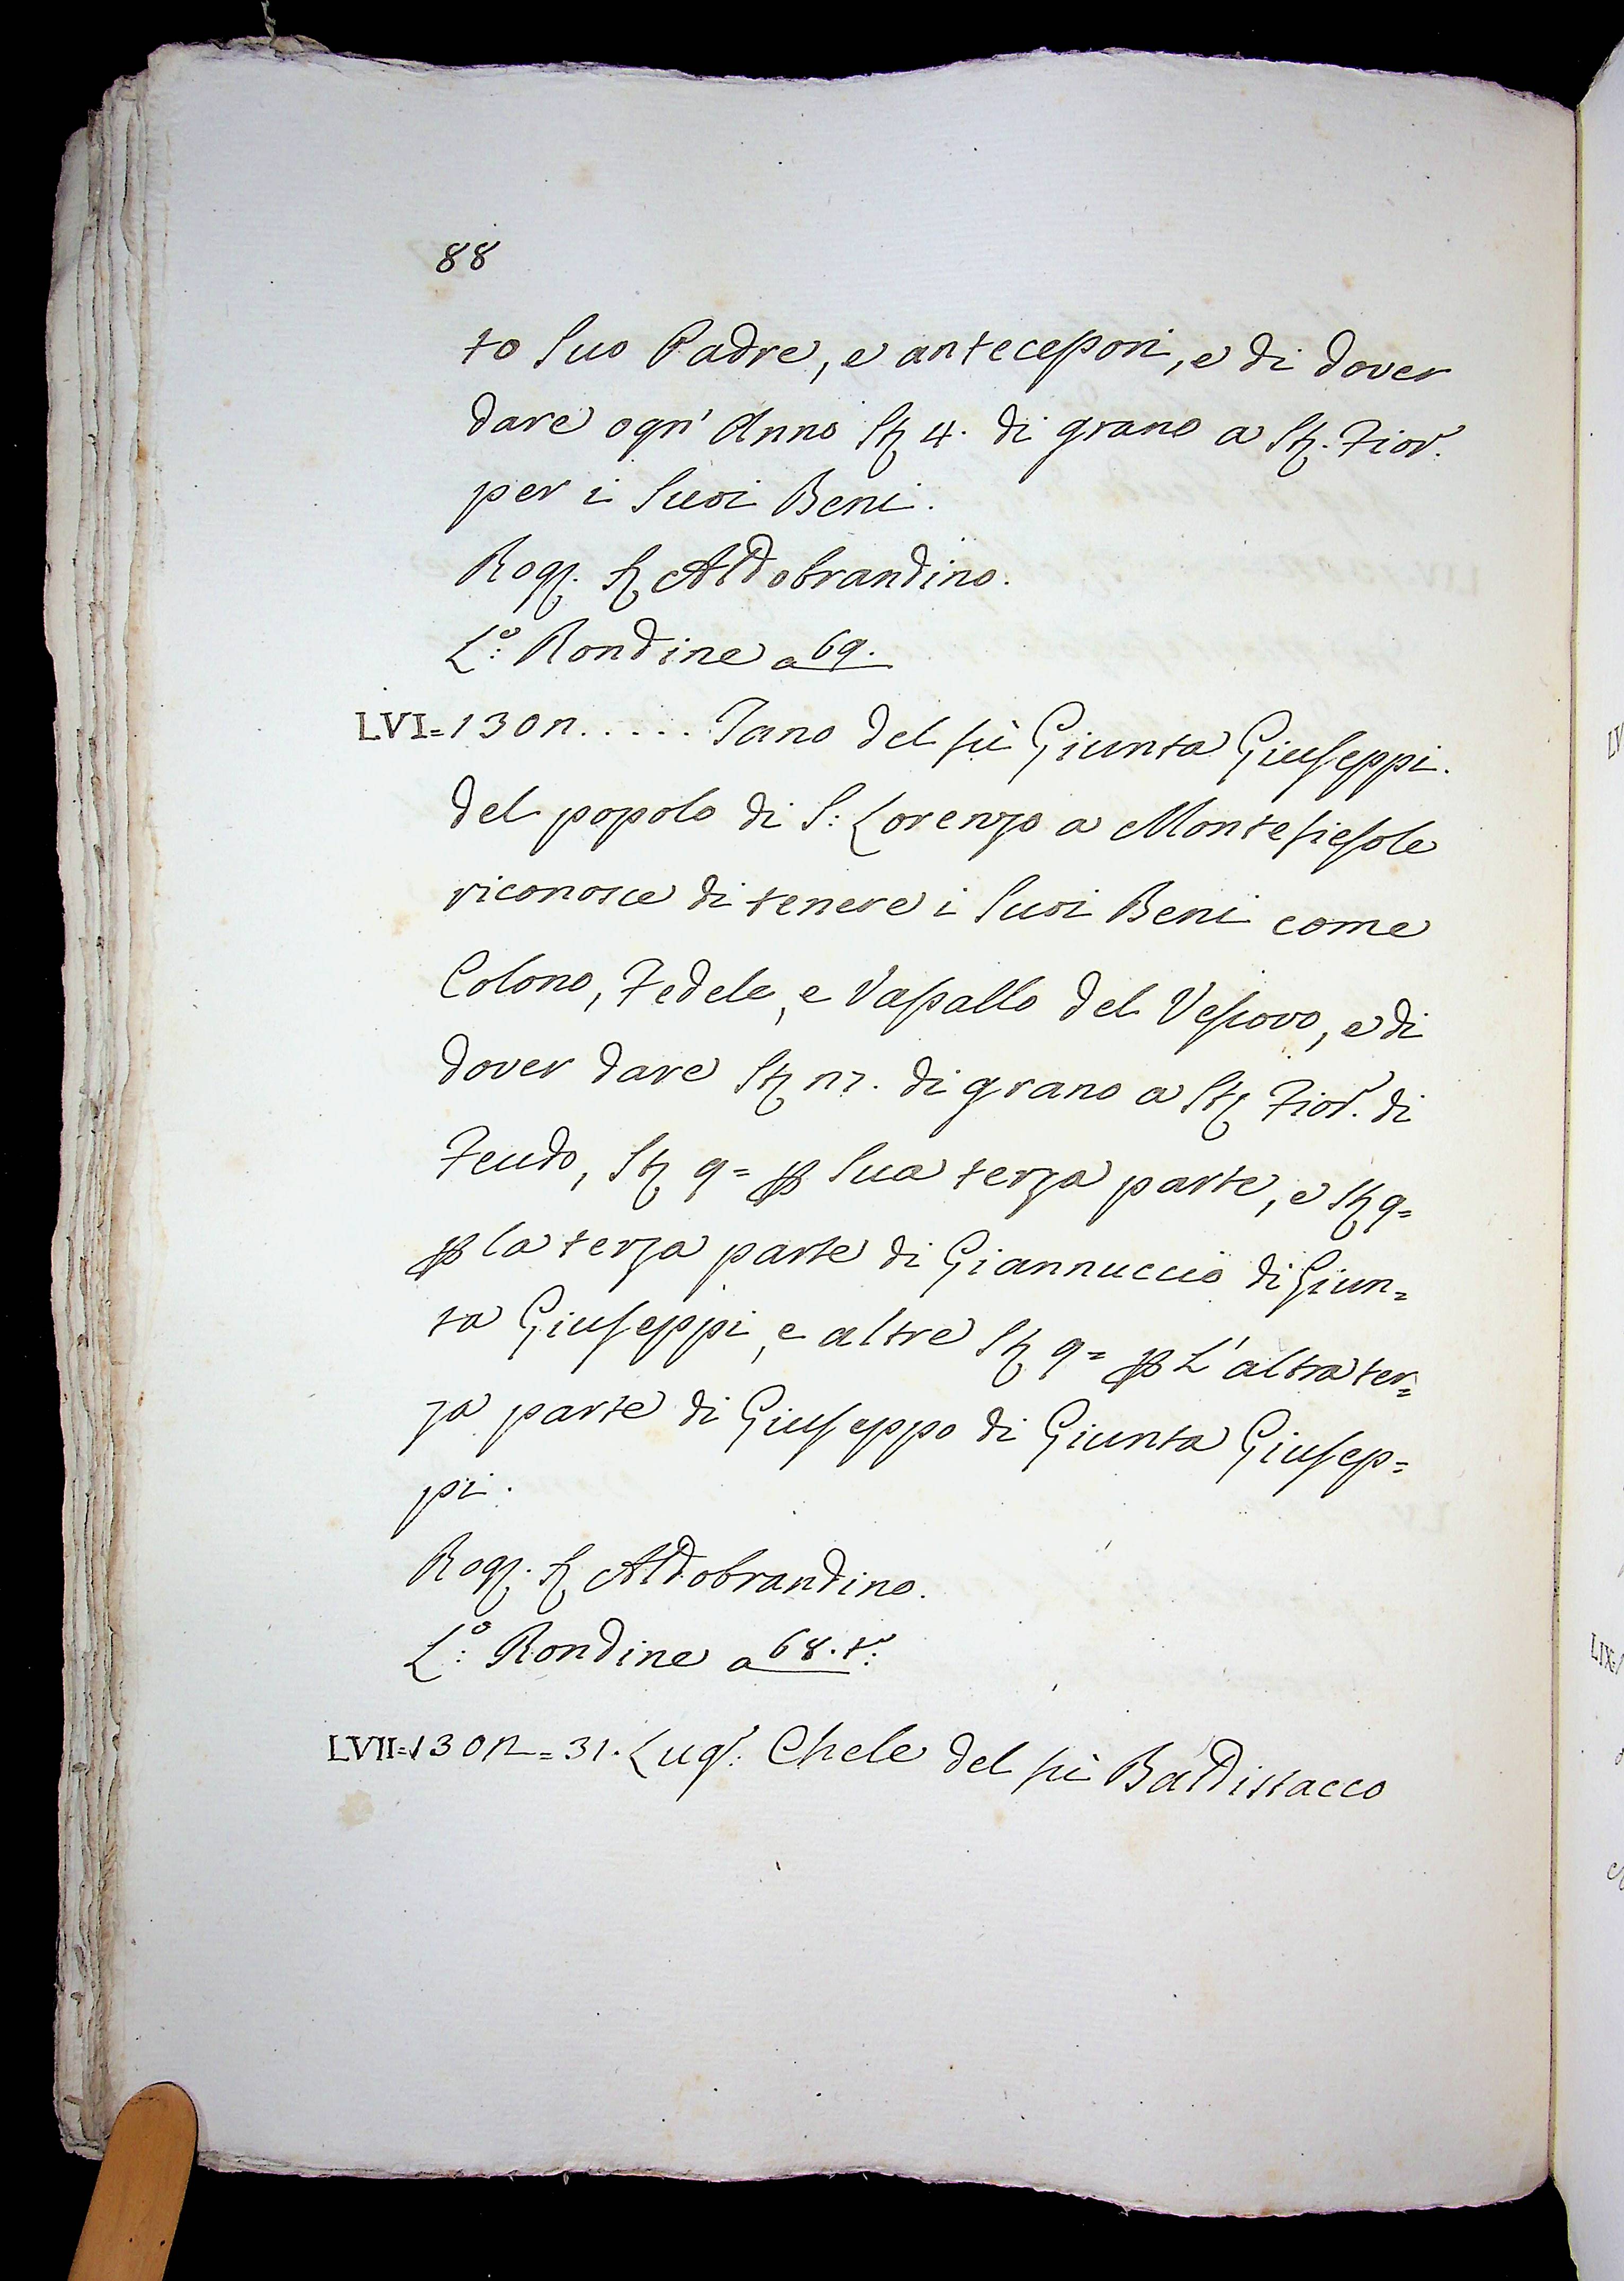 88
to Suo Padre, e antecessori, e di dover
dare ogn' Anno Sta 4. di grano a Sta. Fior.
per i Suoi Beni.
Rog. Aldobrandino.
L.o: Rondine a 69.
LVI=130 Tano del fù Giunta Giuseppi.
del popolo di S: Lorenzo a Montefiesole
riconosce di tenere i Suoi Beni come
Colono, Fedele, e Vassallo del Vescovo, e di
dover dare Sta di grano a Sta Fior. di
Feudo, Sta 9= p Sua terza parte, e Sta 9=
p la terza parte di Giannuccio di Giun=
ta Giuseppi, e altre Sta 9= p L'altra ter=
za parte di Giuseppo di Giunta Giusep=
pi.
Rog. Aldobrandino.
L.o: Rondine a 68. t.o:
LVII=130 =31. Lug.: Chele del fù Baldistacco